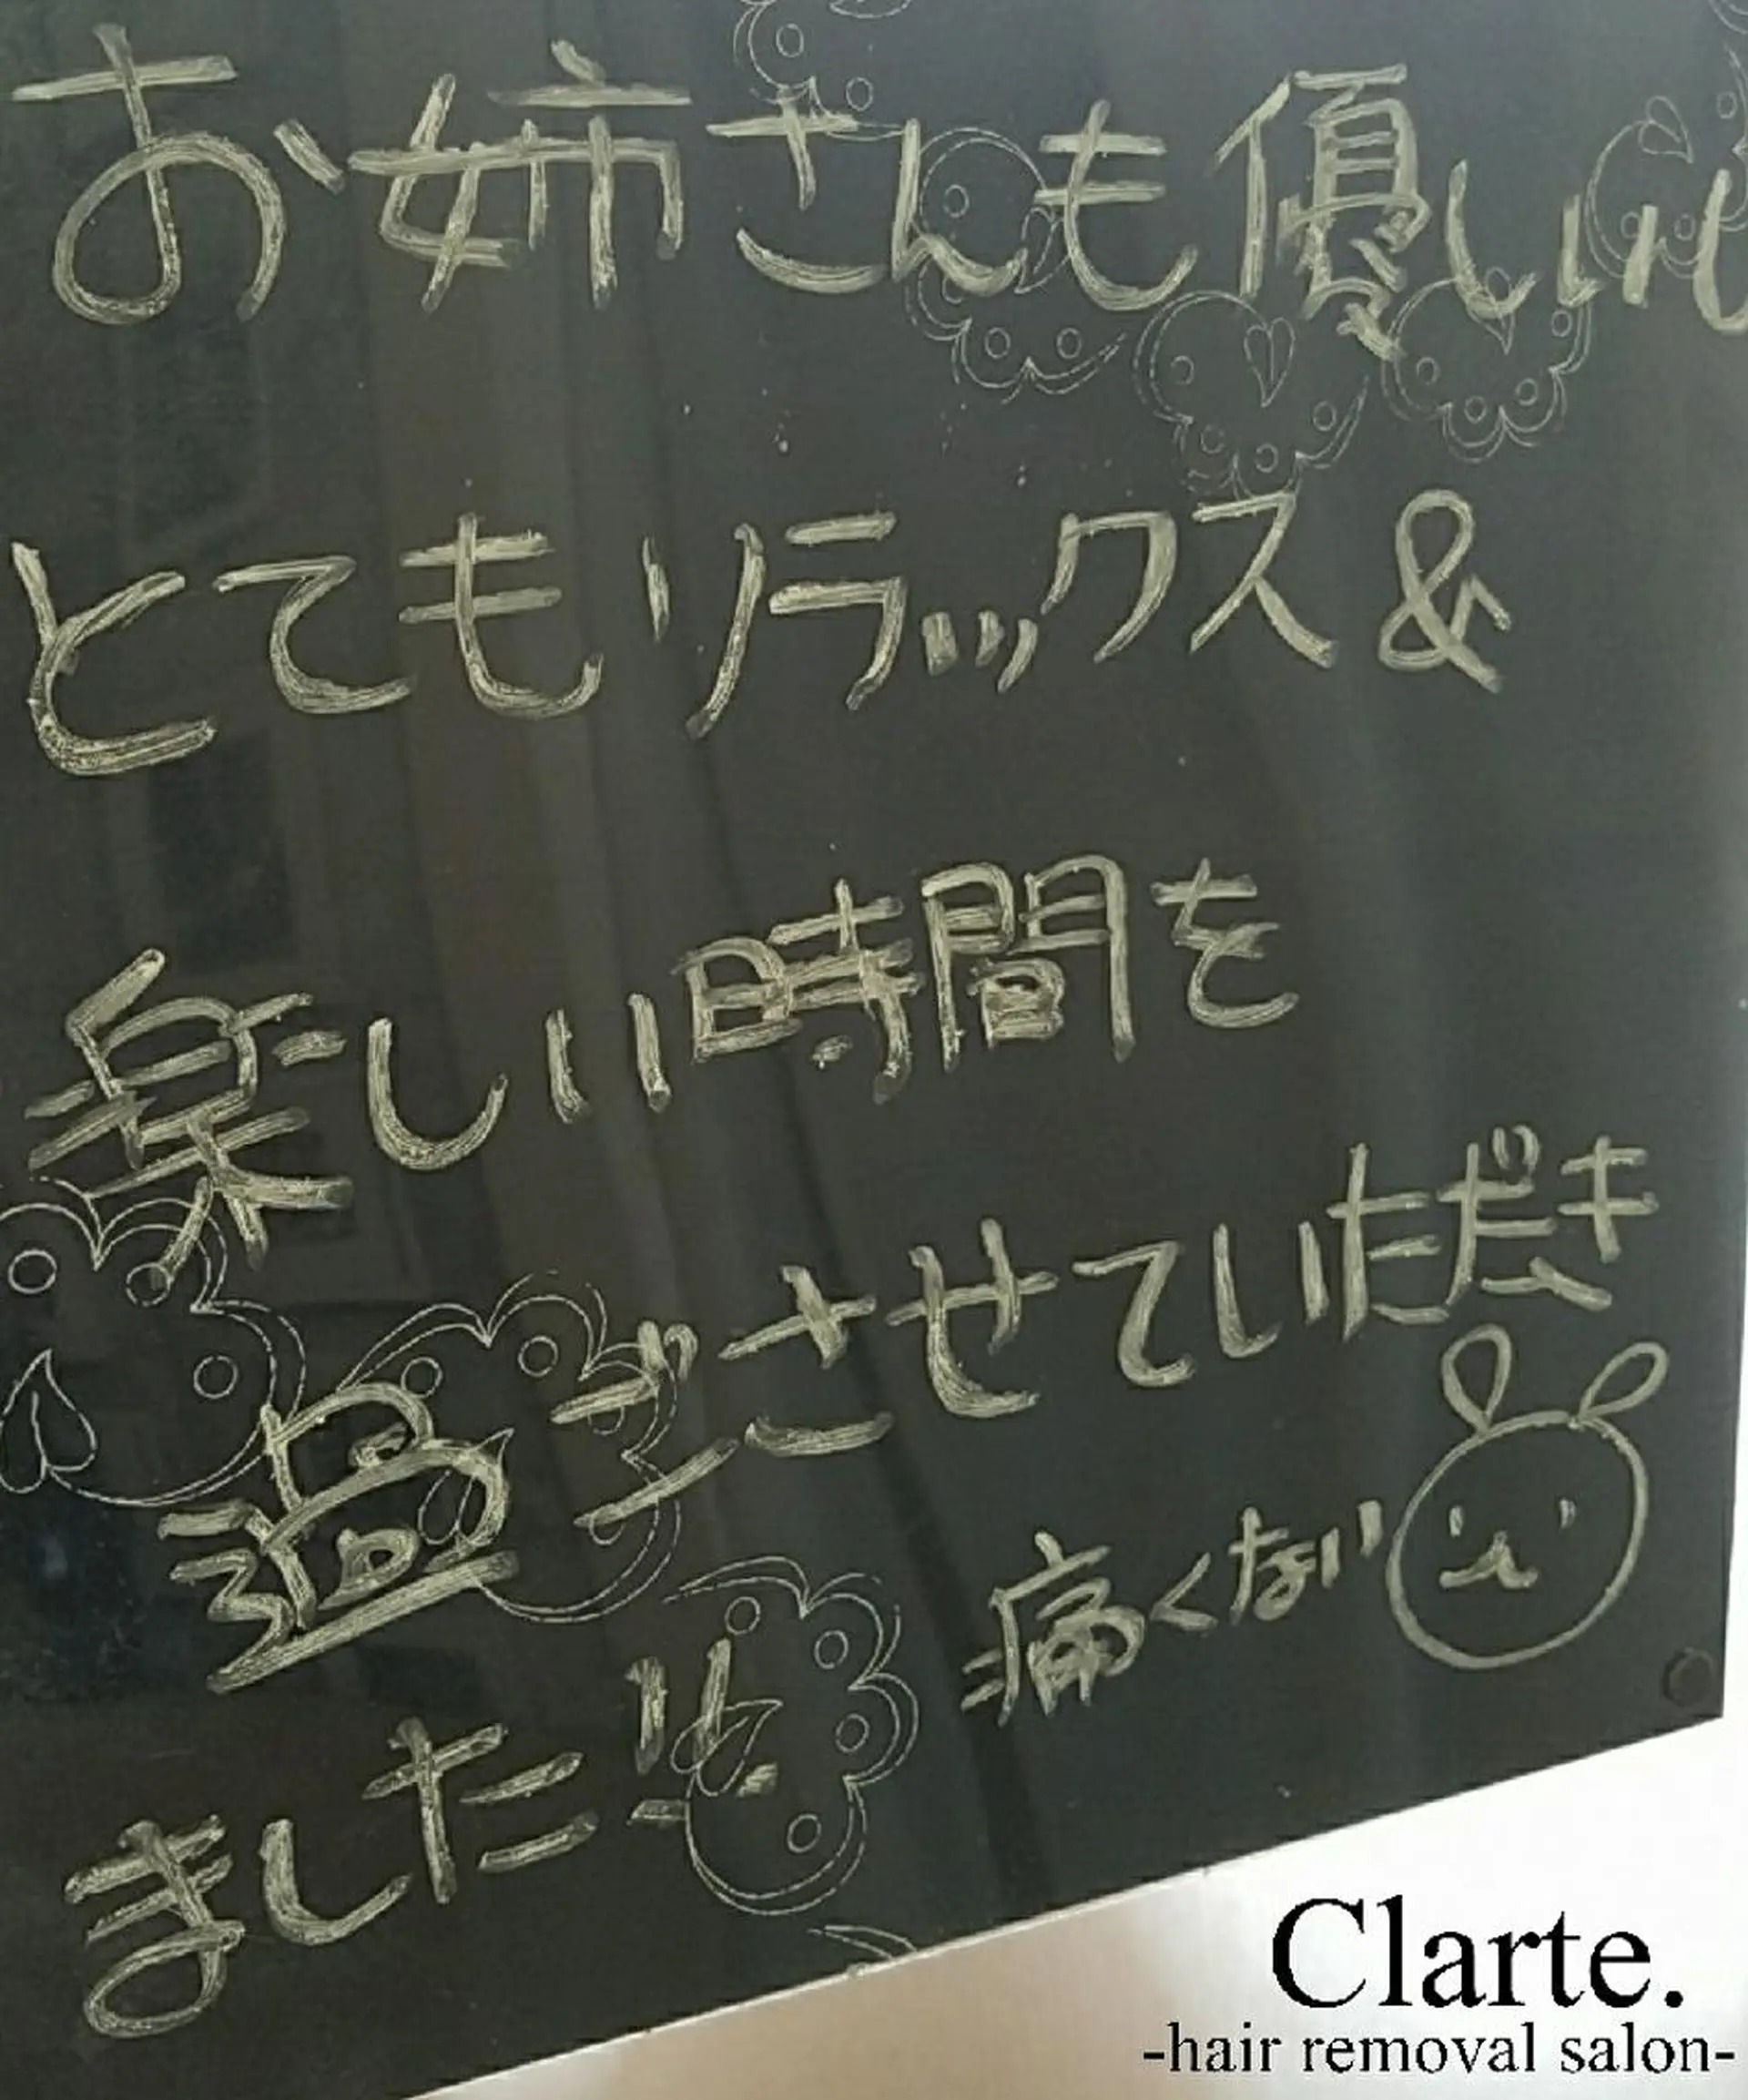 お姉さんも優しいし
とてもリラックス&
楽しい時間を
過ごさせていただき
ました!!
痛くない
Clarte.
-hair removal salon-